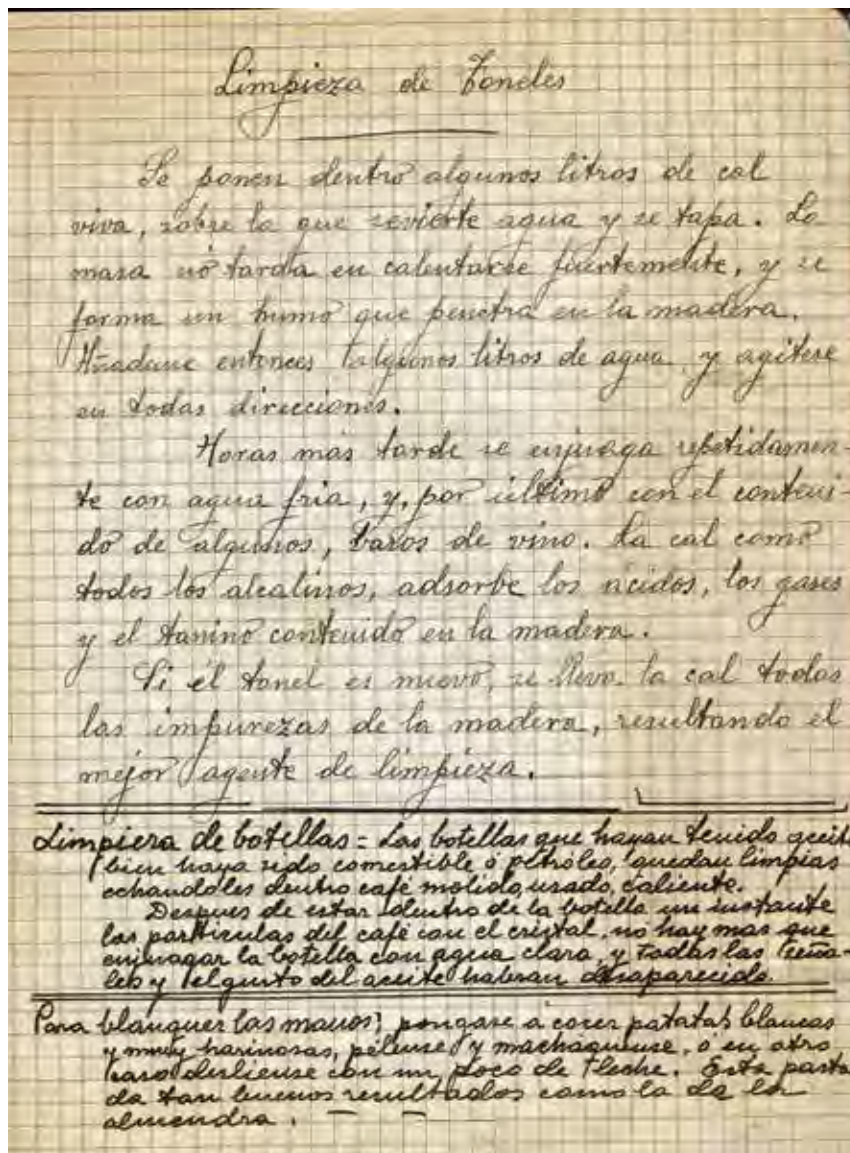 Limpieza de Toneles
Se ponen dentro algunos litros de cal
viva, sobre la que se vierte agua y se tapa. La
masa no tarda en calentarse fuertemente, y se
forma un humo que penetra en la madera.
Añadanse entonces algunos litros de agua y agitese
en todas direcciones.
Horas más tarde se enjuaga repetidamen-
te con agua fria, y, por último con el conteni-
do de algunos, vasos de vino. La cal como
todos los alcalinos, adsorbe los ácidos, los gases
y el tanino contenido en la madera.
Si el tonel es nuevo, se lleva la cal todas
las impurezas de la madera, resultando el
mejor agente de limpieza.
Limpiera de botellas = Las botellas que hayan tenido aceite
bien haya sido comestible ó petróleo, quedan limpias
echandoles dentro café molido, usado, caliente.
Despues de estar dentro de la botella un instante
las particulas del café con el cristal, no hay mas que
enjuagar la botella con agua clara, y todas las seña-
les y el gusto del aceite habran desaparecido.
Para blanquer las manos; pongase á cocer patatas blancas
y muy harinosas, pélense y machaquense, ó en otro
caso deslíense con un poco de leche. Esta pasta
da tan buenos resultados como la de la
almendra.